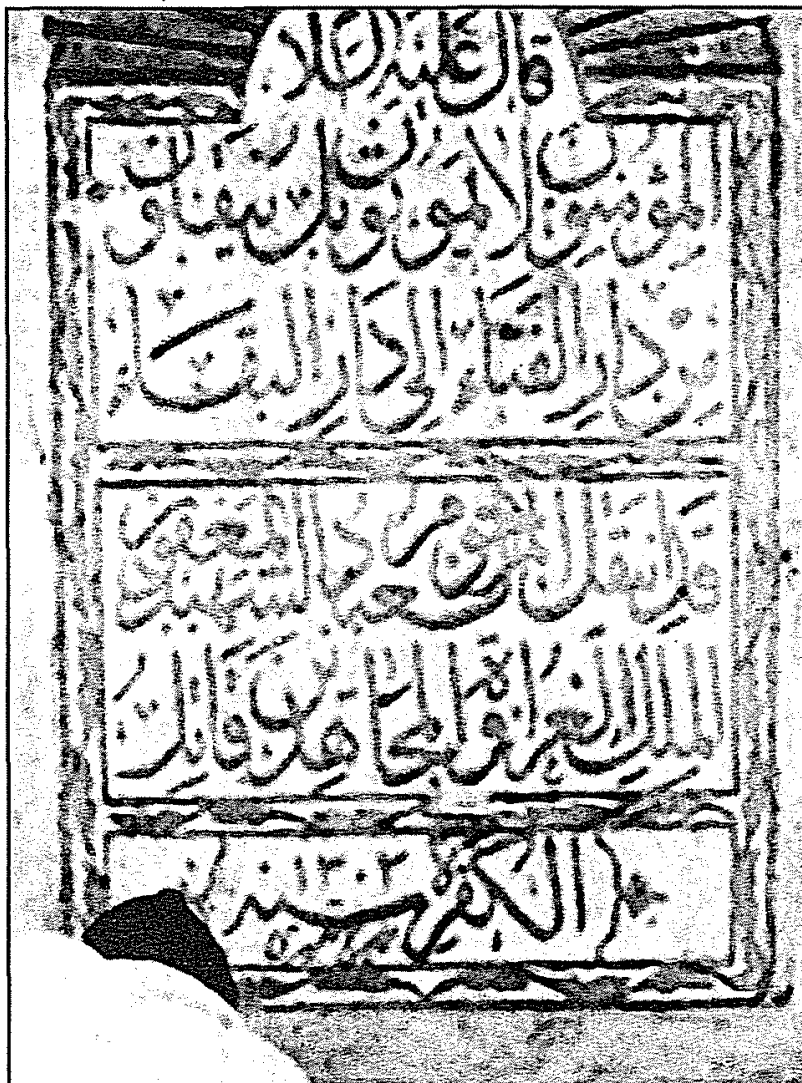 قال عليه السلا
المؤمنون لا يموتون بل ينقلون
من دار الفناء الى دار البقاء
قد انتقل المرحوم المغفور الشهيد
الغزاة والمجاهدين قاتل
الكفرة سنه ١٣٠٢